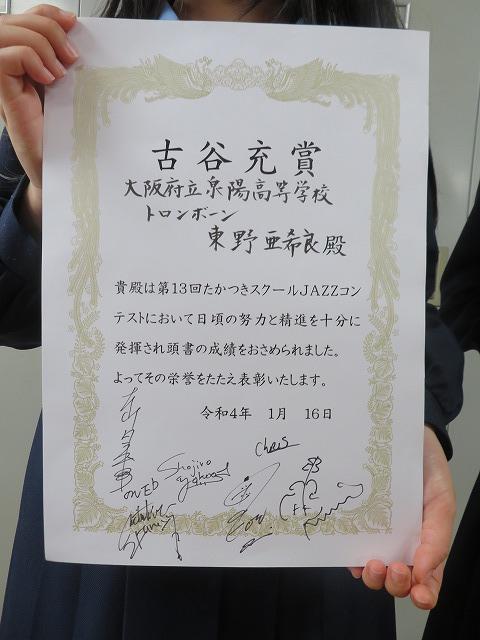 古谷充賞
大阪府立泉陽高等学校
トロンボーン
東野亜希良殿
貴殿は第13回たかつきスクールJAZZコン
テストにおいて日頃の努力と精進を十分に
発揮され頭書の成績をおさめられました。
よってその栄誉をたたえ表彰いたします。
令和4年 1月 16日
Chaos